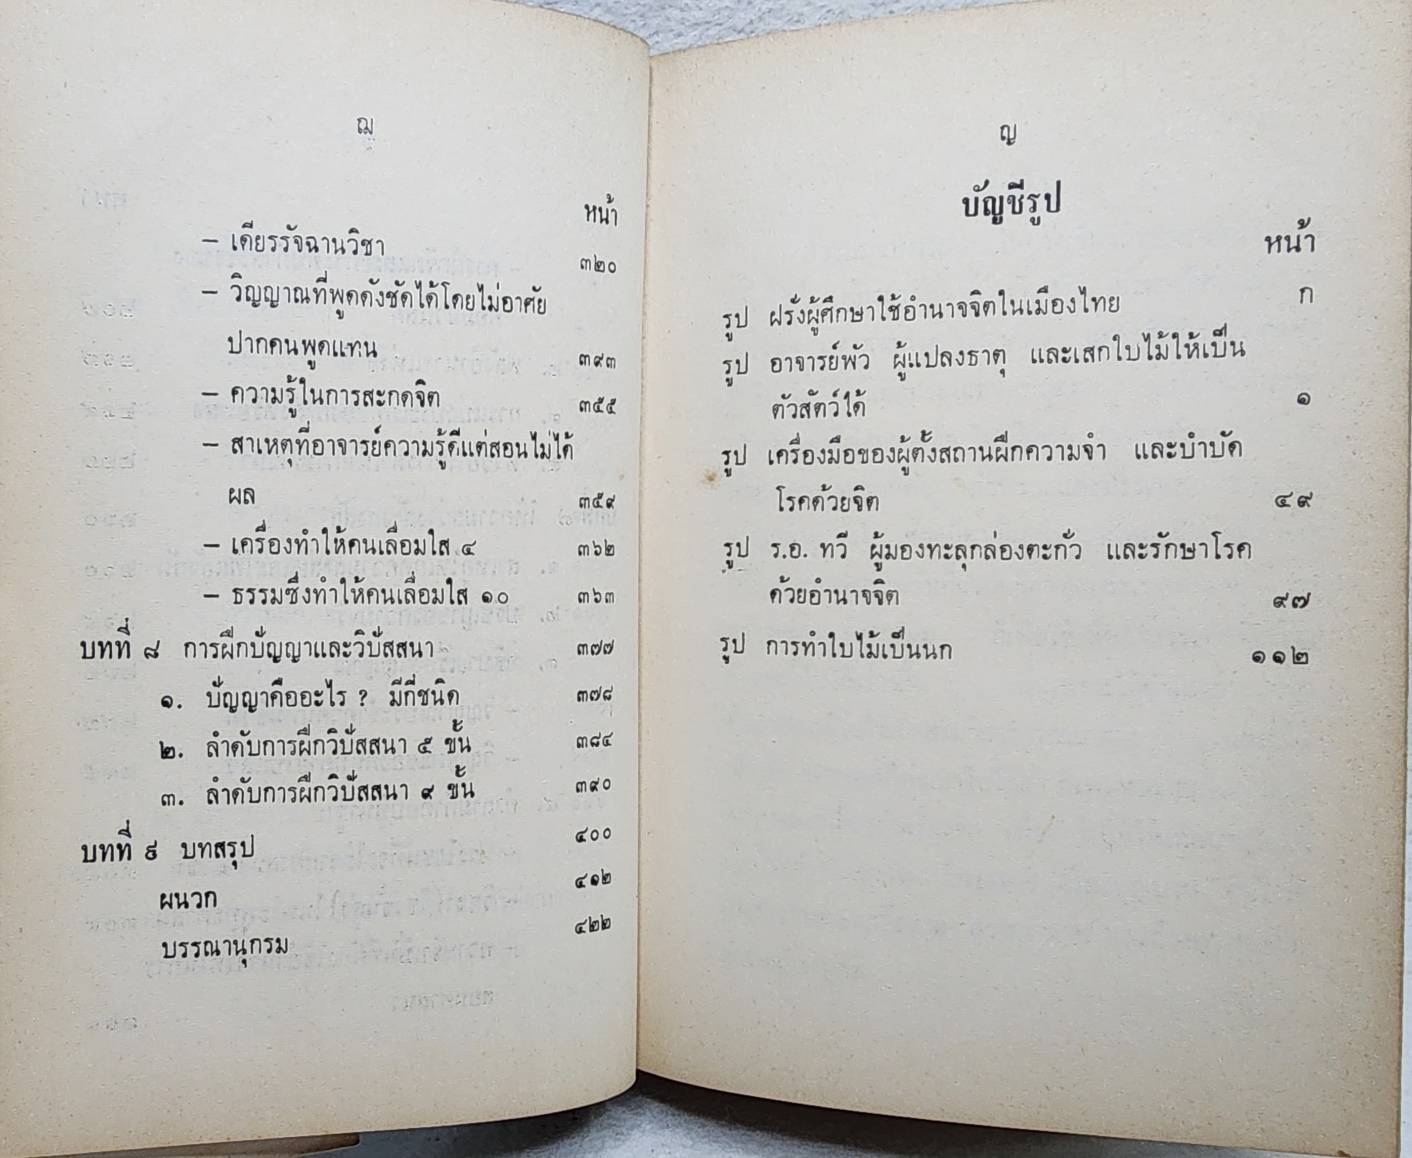 ฌ
หน้า
– เดียรรัจฉานวิชา ๓๒๐
– วิญญาณที่พูดดังชัดได้โดยไม่อาศัย
ปากคนพูดแทน ๓๙๓
– ความรู้ในการสะกดจิต ๓๕๕
– สาเหตุที่อาจารย์ความรู้ดีแต่สอนไม่ได้
ผล ๓๕๙
– เครื่องทำให้คนเลื่อมใส ๔ ๓๖๒
– ธรรมซึ่งทำให้คนเลื่อมใส ๑๐ ๓๖๓
บทที่ ๘ การฝึกปัญญาและวิปัสสนา ๓๗๗
๑. ปัญญาคืออะไร ? มีกี่ชนิด ๓๗๘
๒. ลำดับการฝึกวิปัสสนา ๕ ขั้น ๓๘๔
๓. ลำดับการฝึกวิปัสสนา ๙ ขั้น ๓๙๐
บทที่ ๙ บทสรุป ๔๐๐
ผนวก ๔๑๒
บรรณานุกรม ๔๒๒
ญ
บัญชีรูป
หน้า
รูป ฝรั่งผู้ศึกษาใช้อำนาจจิตในเมืองไทย ก
รูป อาจารย์พัว ผู้แปลงธาตุ และเสกใบไม้ให้เป็น
ตัวสัตว์ได้ ๑
รูป เครื่องมือของผู้ตั้งสถานฝึกความจำ และบำบัด
โรคด้วยจิต ๔๙
รูป ร.อ. ทวี ผู้มองทะลุกล่องตะกั่ว และรักษาโรค
ด้วยอำนาจจิต ๙๗
รูป การทำใบไม้เป็นนก ๑๑๒